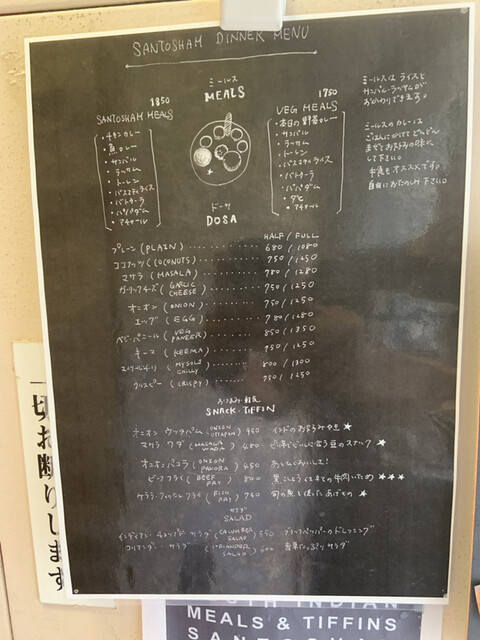 SANTOSHAM DINNER MENU
ミールス
MEALS
1850
SANTOSHAM MEALS
・チキンカレー
・魚カレー
・サンバル
・ラッサム
・トーレン
・バスマティライス
・バトゥーラ
・パパダム
・アチャール
1750
VEG MEALS
・本日の野菜カレー
・サンバル
・ラッサム
・トーレン
・バスマティライス
・バトゥーラ
・パパダム
・ダヒ
・アチャール
ミールスは ライスと
サンバル・ラッサムが
おかわりできます。
ミールスのカレーは
ごはんにかけて どんどん
まぜて お好みの味に
して下さい。
手食もオススメです。
自由にお楽しみ下さい。
ドーサ
DOSA
HALF / FULL
プレーン (PLAIN) 680 / 1080
ココナッツ (COCONUTS) 750 / 1250
マサラ (MASALA) 780 / 1280
ガーリックチーズ (GARLIC CHEESE) 750 / 1250
オニオン (ONION) 750 / 1250
エッグ (EGG) 780 / 1280
ベジ・パニール (VEG PANEER) 850 / 1350
キーマ (KEEMA) 750 / 1250
(MYSOLE CHILLY) 800 / 1300
クリスピー (CRISPY) 750 / 1250
SNACK・TIFFIN
オニオン ウッタパム (ONION UTTAPAM) 450 インドのお好み焼き ★
マサラ ワダ (MASALA WADA) 480 ビールに合う豆のスナック ★
オニオンパコラ (ONION PAKORA) 450
ビーフフライ (BEEF FRY) 800 牛肉いため ★★★
ケララ・フィッシュフライ (FISH FRY) 740 旬の魚を使ったあげもの ★
サラダ
SALAD
サラダ (CUCUMBER SALAD) 550 ブラックペッパーのドレッシング
コリアンダー サラダ (CORIANDER SALAD) 600 香菜たっぷりサラダ
切お断りします
SOUTH INDIAN
MEALS & TIFFINS